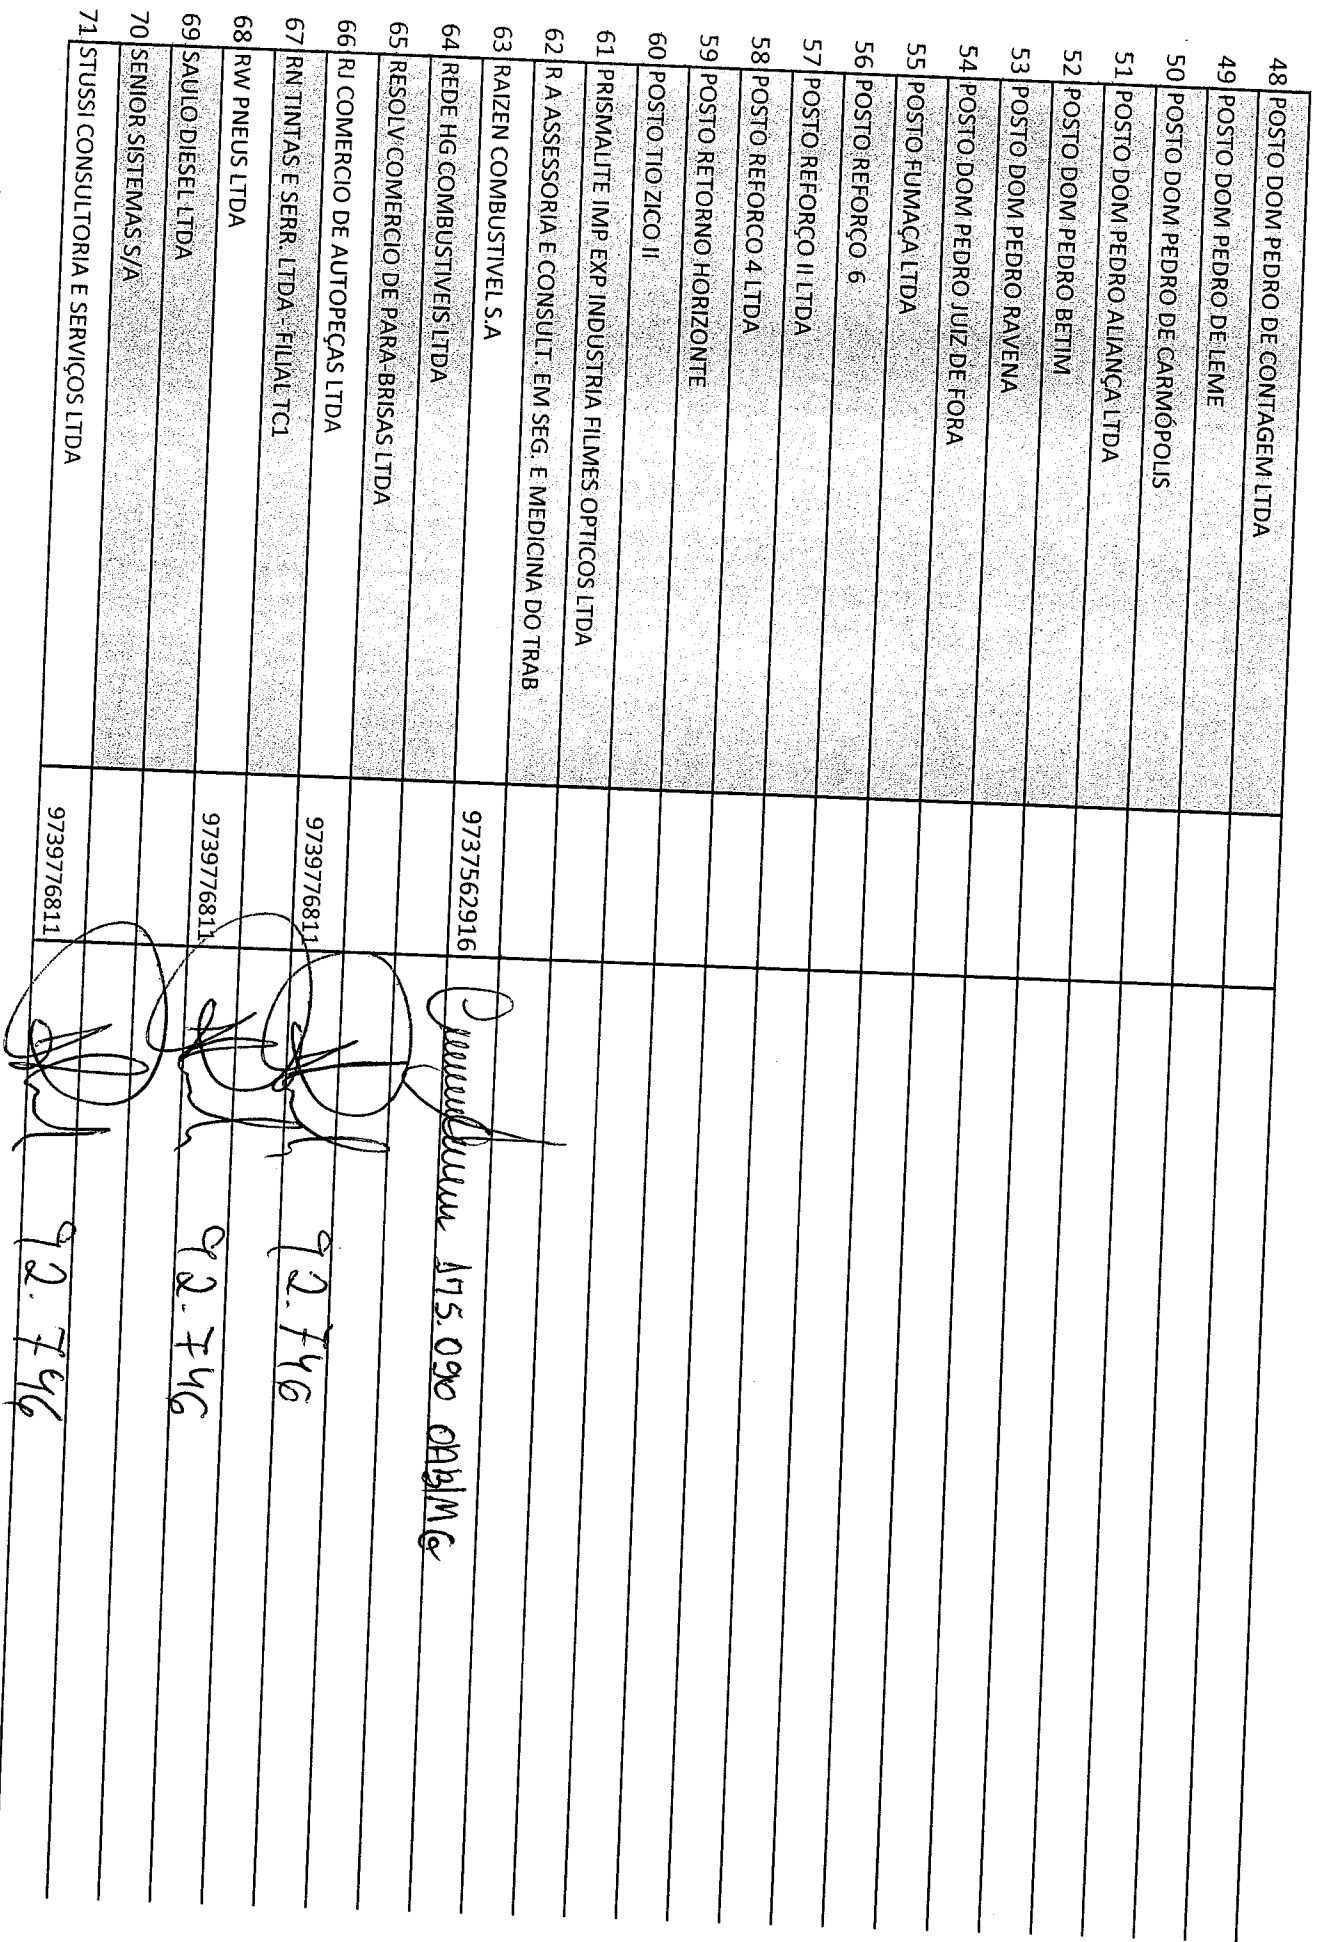 48 POSTO DOM PEDRO DE CONTAGEM LTDA
49 POSTO DOM PEDRO DE LEME
50 POSTO DOM PEDRO DE CARMÓPOLIS
51 POSTO DOM PEDRO ALIANÇA LTDA
52 POSTO DOM PEDRO BETIM
53 POSTO DOM PEDRO RAVENA
54 POSTO DOM PEDRO JUIZ DE FORA
55 POSTO FUMAÇA LTDA
56 POSTO REFORÇO 6
57 POSTO REFORÇO II LTDA
58 POSTO REFORCO 4 LTDA
59 POSTO RETORNO HORIZONTE
60 POSTO TIO ZICO II
61 PRISMALITE IMP EXP INDUSTRIA FILMES OPTICOS LTDA
62 R A ASSESSORIA E CONSULT. EM SEG. E MEDICINA DO TRAB
63 RAIZEN COMBUSTIVEL S.A 9737562916 175.090 OAB/MG
64 REDE HG COMBUSTIVEIS LTDA
65 RESOLV COMERCIO DE PARA-BRISAS LTDA
66 RJ COMERCIO DE AUTOPEÇAS LTDA 9739776811 92.746
67 RN TINTAS E SERR. LTDA - FILIAL TC1
68 RW PNEUS LTDA 9739776811 92.746
69 SAULO DIESEL LTDA
70 SENIOR SISTEMAS S/A
71 STUSSI CONSULTORIA E SERVIÇOS LTDA 9739776811 92.746